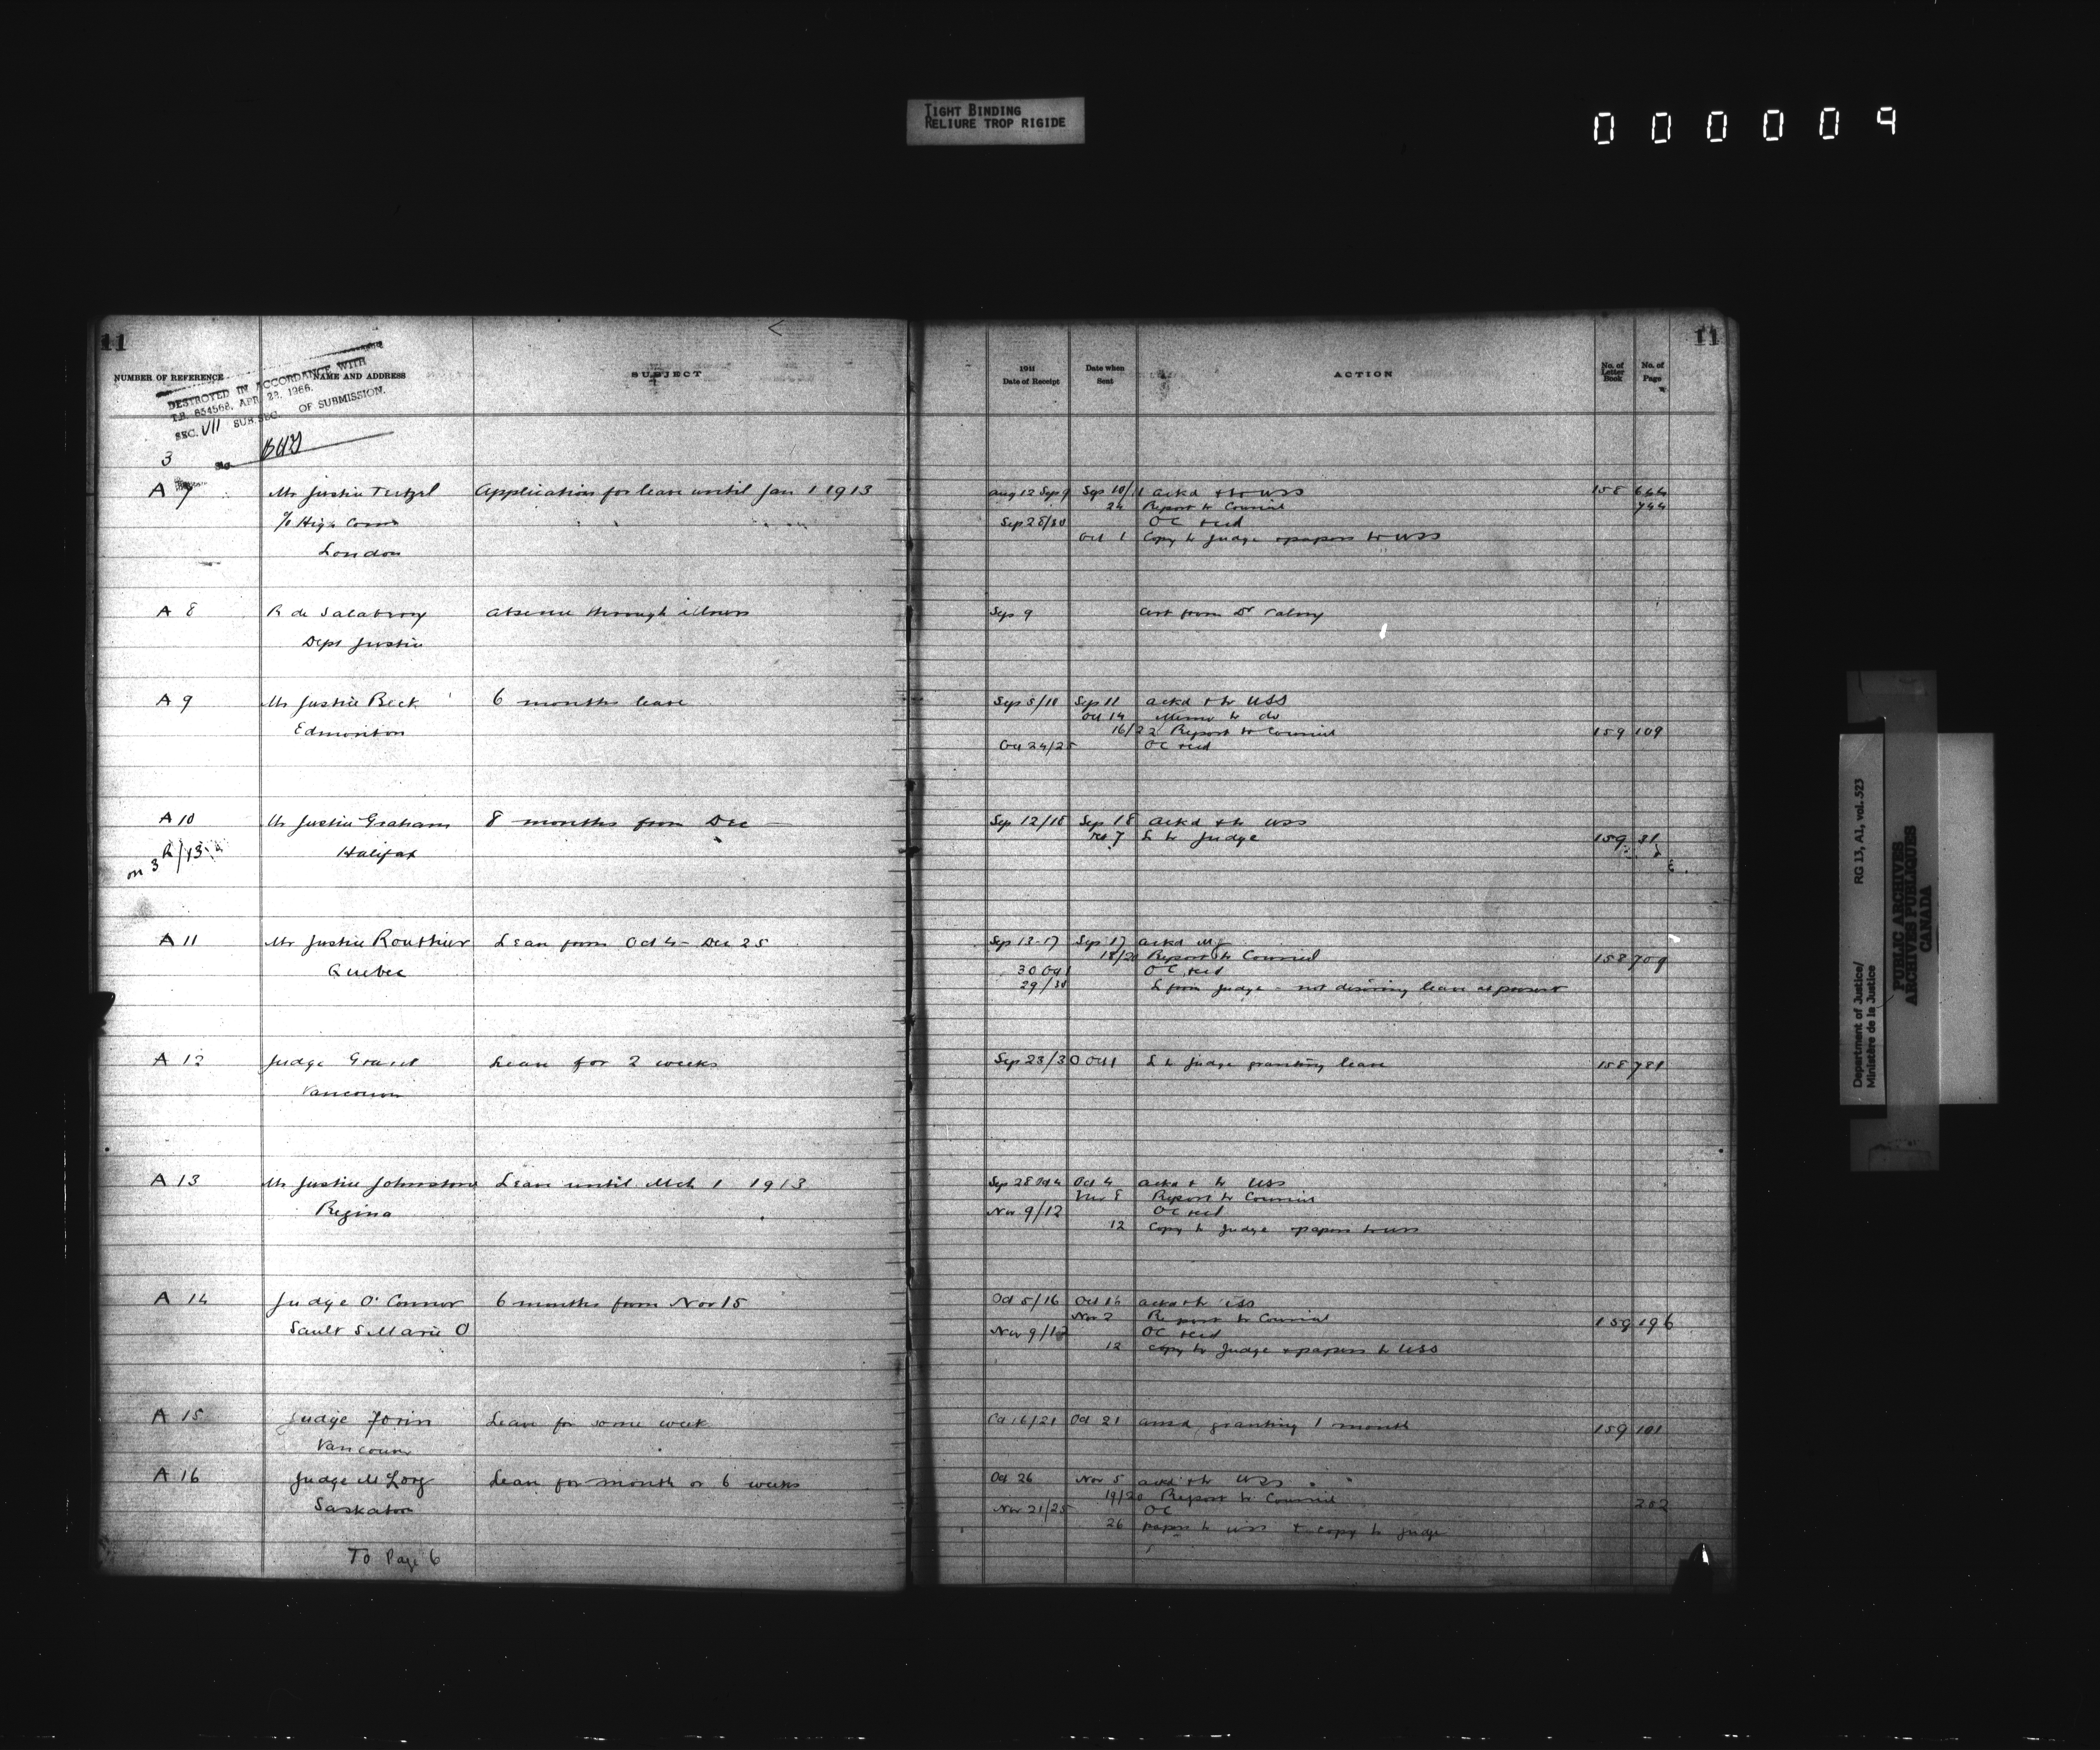 TIGHT BINDING
RELIURE TROP RIGIDE
000009
11
11
NUMBER OF REFERENCE NAME AND ADDRESS SUBJECT
1911 Date of Receipt Date when Sent ACTION No. of Letter Book No. of Page
DESTROYED IN ACCORDANCE WITH
T.B. 654568, APR 22, 1966.
SEC. VII SUB.SEC. OF SUBMISSION.
3
A 7 Mr Justice Teetzel Application for leave until Jan 1 1913 Aug 12 Sep 9 Sep 10/11 ackd & to USS 158 644
24 Report to Council 744
c/o High Comr Sep 28/30 OC recd
Oct 1 Copy to Judge & papers to USS
London
A 8 R de Salaberry absence through illness Sep 9 Cert from Dr
Dept Justice
A 9 Mr Justice Beck 6 months leave Sep 5/10 Sep 11 ackd & to USS
Oct 14 Memo to do
Edmonton 16/22 Report to Council 159 109
Oct 24/25 OC recd
A 10 Mr Justice Graham 8 months from Dec — Sep 12/18 Sep 18 ackd & to USS
Oct 7 L to Judge 159 31
Halifax
on 3 R/13
A 11 Mr Justice Routhier Leave from Oct 4 - Dec 25 Sep 13-17 Sep 17 ackd
18/20 Report to Council 158 709
Quebec 30 Oct 1 OC recd
29/30 L from Judge - not desiring leave at present
A 12 Judge Grant Leave for 2 weeks Sep 23/30 Oct 1 L to Judge granting leave 158 781
Vancouver
A 13 Mr Justice Johnstone Leave until Mch 1 1913 Sep 28 Oct 4 Oct 4 ackd & to USS
Nov 8 Report to Council
Regina Nov 9/12 OC recd
12 Copy to Judge & papers to USS
A 14 Judge O'Connor 6 months from Nov 15 Oct 5/16 Oct 16 ackd & to USS
Nov 2 Report to Council 159 196
Sault S Marie O Nov 9/12 OC recd
12 copy to Judge & papers to USS
A 15 Judge Forin Leave for some week Oct 16/21 Oct 21 ansd granting 1 month 159 101
Vancouver
A 16 Judge McLorg Leave for month or 6 weeks Oct 26 Nov 5 ackd & to USS
19/20 Report to Council 202
Saskatoon Nov 21/25 OC
26 papers to USS & copy to Judge
To Page 6
Department of Justice/
Ministère de la Justice
RG 13, A1, vol. 523
PUBLIC ARCHIVES
ARCHIVES PUBLIQUES
CANADA